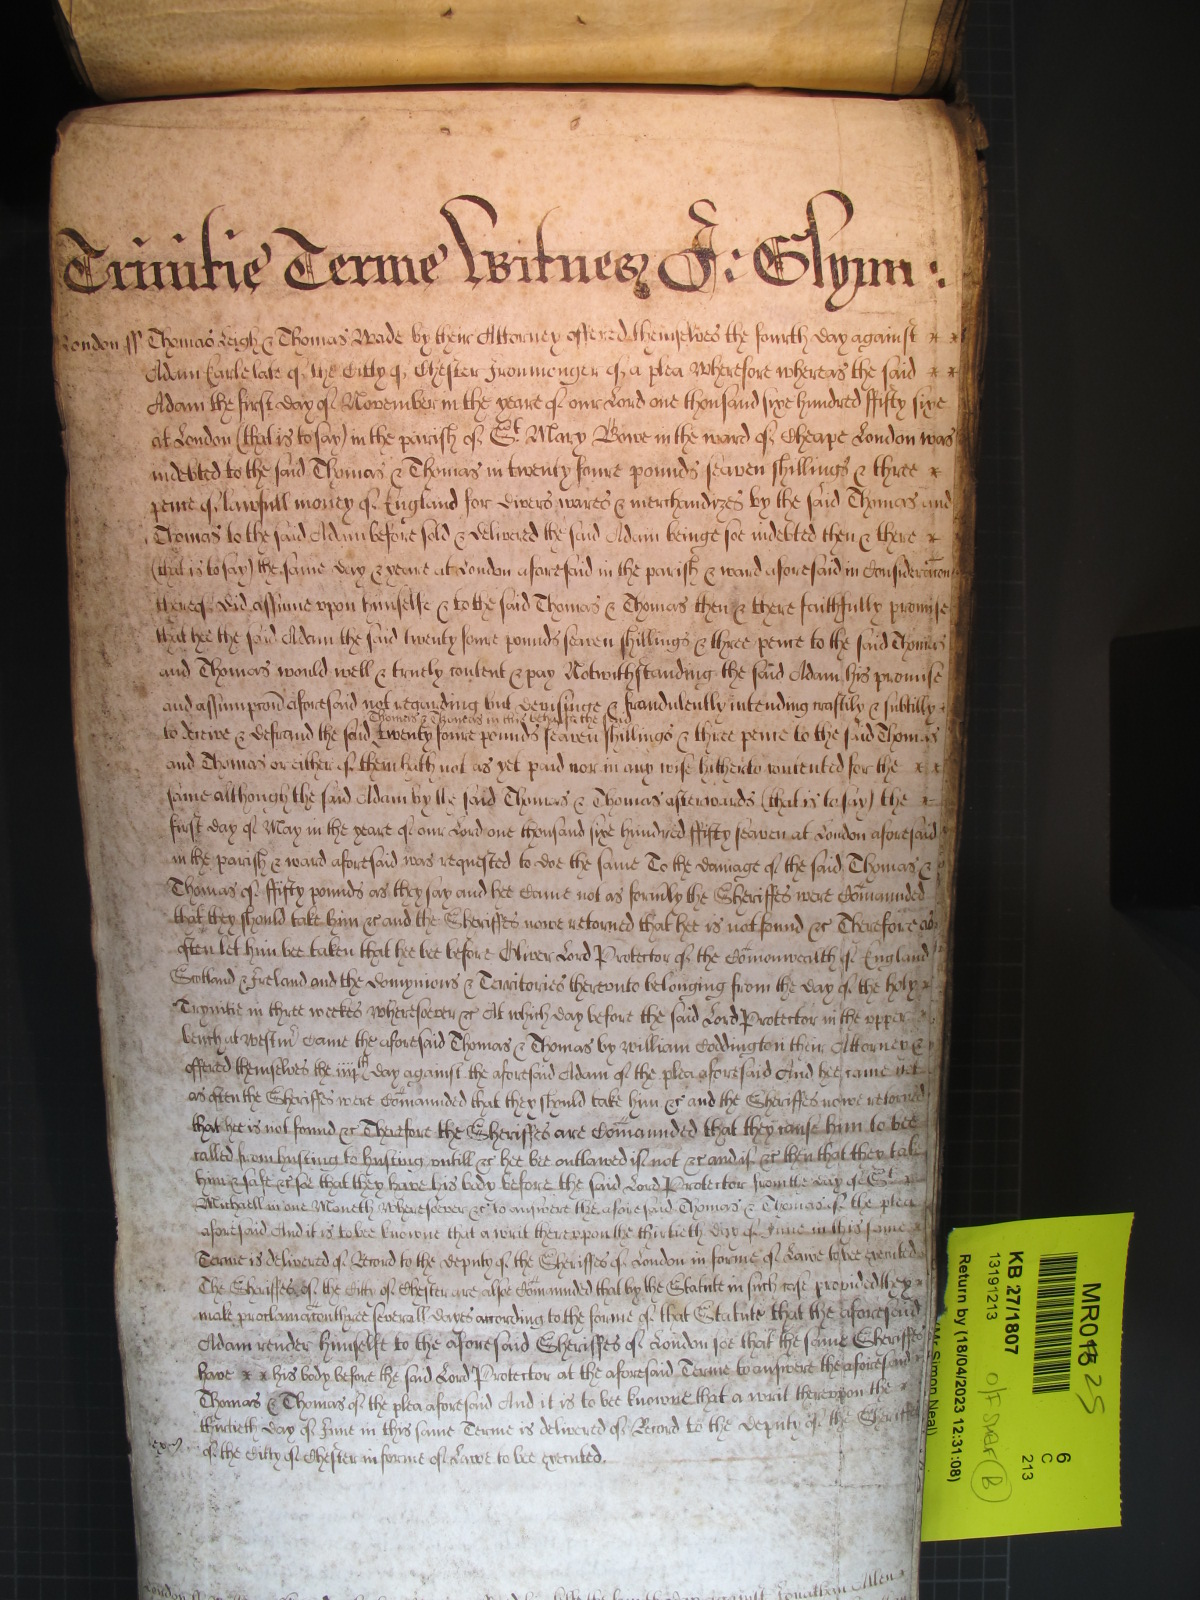 Trinitie Terme Witnes J: Glynn:
London ss Thomas Leigh & Thomas Wade by their Attorney offered themselves the fourth day against
Adam Earle late of the Citty of Chester Ironmonger of a plea Wherefore whereas the said
Adam the first day of November in the yeare of our Lord one thousand sixe hundred fifty sixe
at London (that is to say) in the parish of St Mary Bowe in the ward of Cheape London was
indebted to the said Thomas & Thomas in twenty foure pounds seaven shillings & three
pence of lawfull money of England for divers wares & merchandizes by the said Thomas and
Thomas to the said Adam before sold & delivered the said Adam beinge soe indebted then & there
(that is to say) the same day & yeare at London aforesaid in the parish & ward aforesaid in Consideration
thereof did assume upon himselfe & to the said Thomas & Thomas then & there faithfully promise
that hee the said Adam the said twenty foure pounds seven shillings & three pence to the said Thomas
and Thomas would well & truely content & pay Notwithstanding the said Adam his promise
and assumpcon aforesaid not regarding but devisinge & fraudulently intending craftily & subtilly
Thomas & Thomas in this behalfe the said
to deceive & defraud the said twenty foure pounds seaven shillings & three pence to the said Thomas
and Thomas or either of them hath not as yet paid nor in any wise hitherto contented for the
same although the said Adam by the said Thomas & Thomas afterwards (that is to say) the
first day of May in the yeare of our Lord one thousand sixe hundred fifty seaven at London aforesaid
in the parish & ward aforesaid was requested to doe the same To the damage of the said Thomas &
Thomas of fifty pounds as they say and hee Came not as formerly the Sheriffes were Comaunded
that they should take him &c and the Sheriffes nowe retorned that hee is not found &c Therefore as
often let him bee taken that hee bee before Oliver Lord Protector of the Comonwealth of England
Scotland & Ireland and the Dominions & Territories thereunto belonging from the day of the holy
Trynitie in three weekes Wheresoever &c At which day before the said Lord Protector in the upper
bench at Westmr Came the aforesaid Thomas & Thomas by William Coddington their Attorney &
offered themselves the iiijth day against the aforesaid Adam of the plea aforesaid And hee came not
as often the Sheriffes were Comaunded that they should take him &c and the Sheriffes nowe retorned
that hee is not found &c Therefore the Sheriffes are Comaunded that they cause him to bee
called from husting to husting untill &c hee bee outlawed if not &c and if &c then that they take
him & safe &c soe that they have his body before the said Lord Protector from the day of St
Michaell in one Moneth Wheresoever &c to answere the aforesaid Thomas & Thomas of the plea
aforesaid And it is to bee knowne that a writ thereupon the thirtieth day of June in this same
Terme is delivered of Record to the deputy of the Sheriffes of London in forme of Lawe to bee executed
The Sheriffes of the Citty of Chester are alsoe Comaunded that by the Statute in such case provided they
make proclamacon three severall dayes according to the forme of that Statute that the aforesaid
Adam render himselfe to the aforesaid Sheriffes of London soe that the same Sheriffes
have his body before the said Lord Protector at the aforesaid Terme to answere the aforesaid
Thomas & Thomas of the plea aforesaid And it is to bee knowne that a writ thereupon the
thirtieth day of June in this same Terme is delivered of Record to the Deputy of the Sheriffes
of the Citty of Chester in forme of Lawe to bee executed.
London ss
day against Jonathan Allen
MR018 25
6
C
213
KB 27/1807
13191213
Return by (18/04/2023 12:31:08)
(Mr Simon Neal)
B